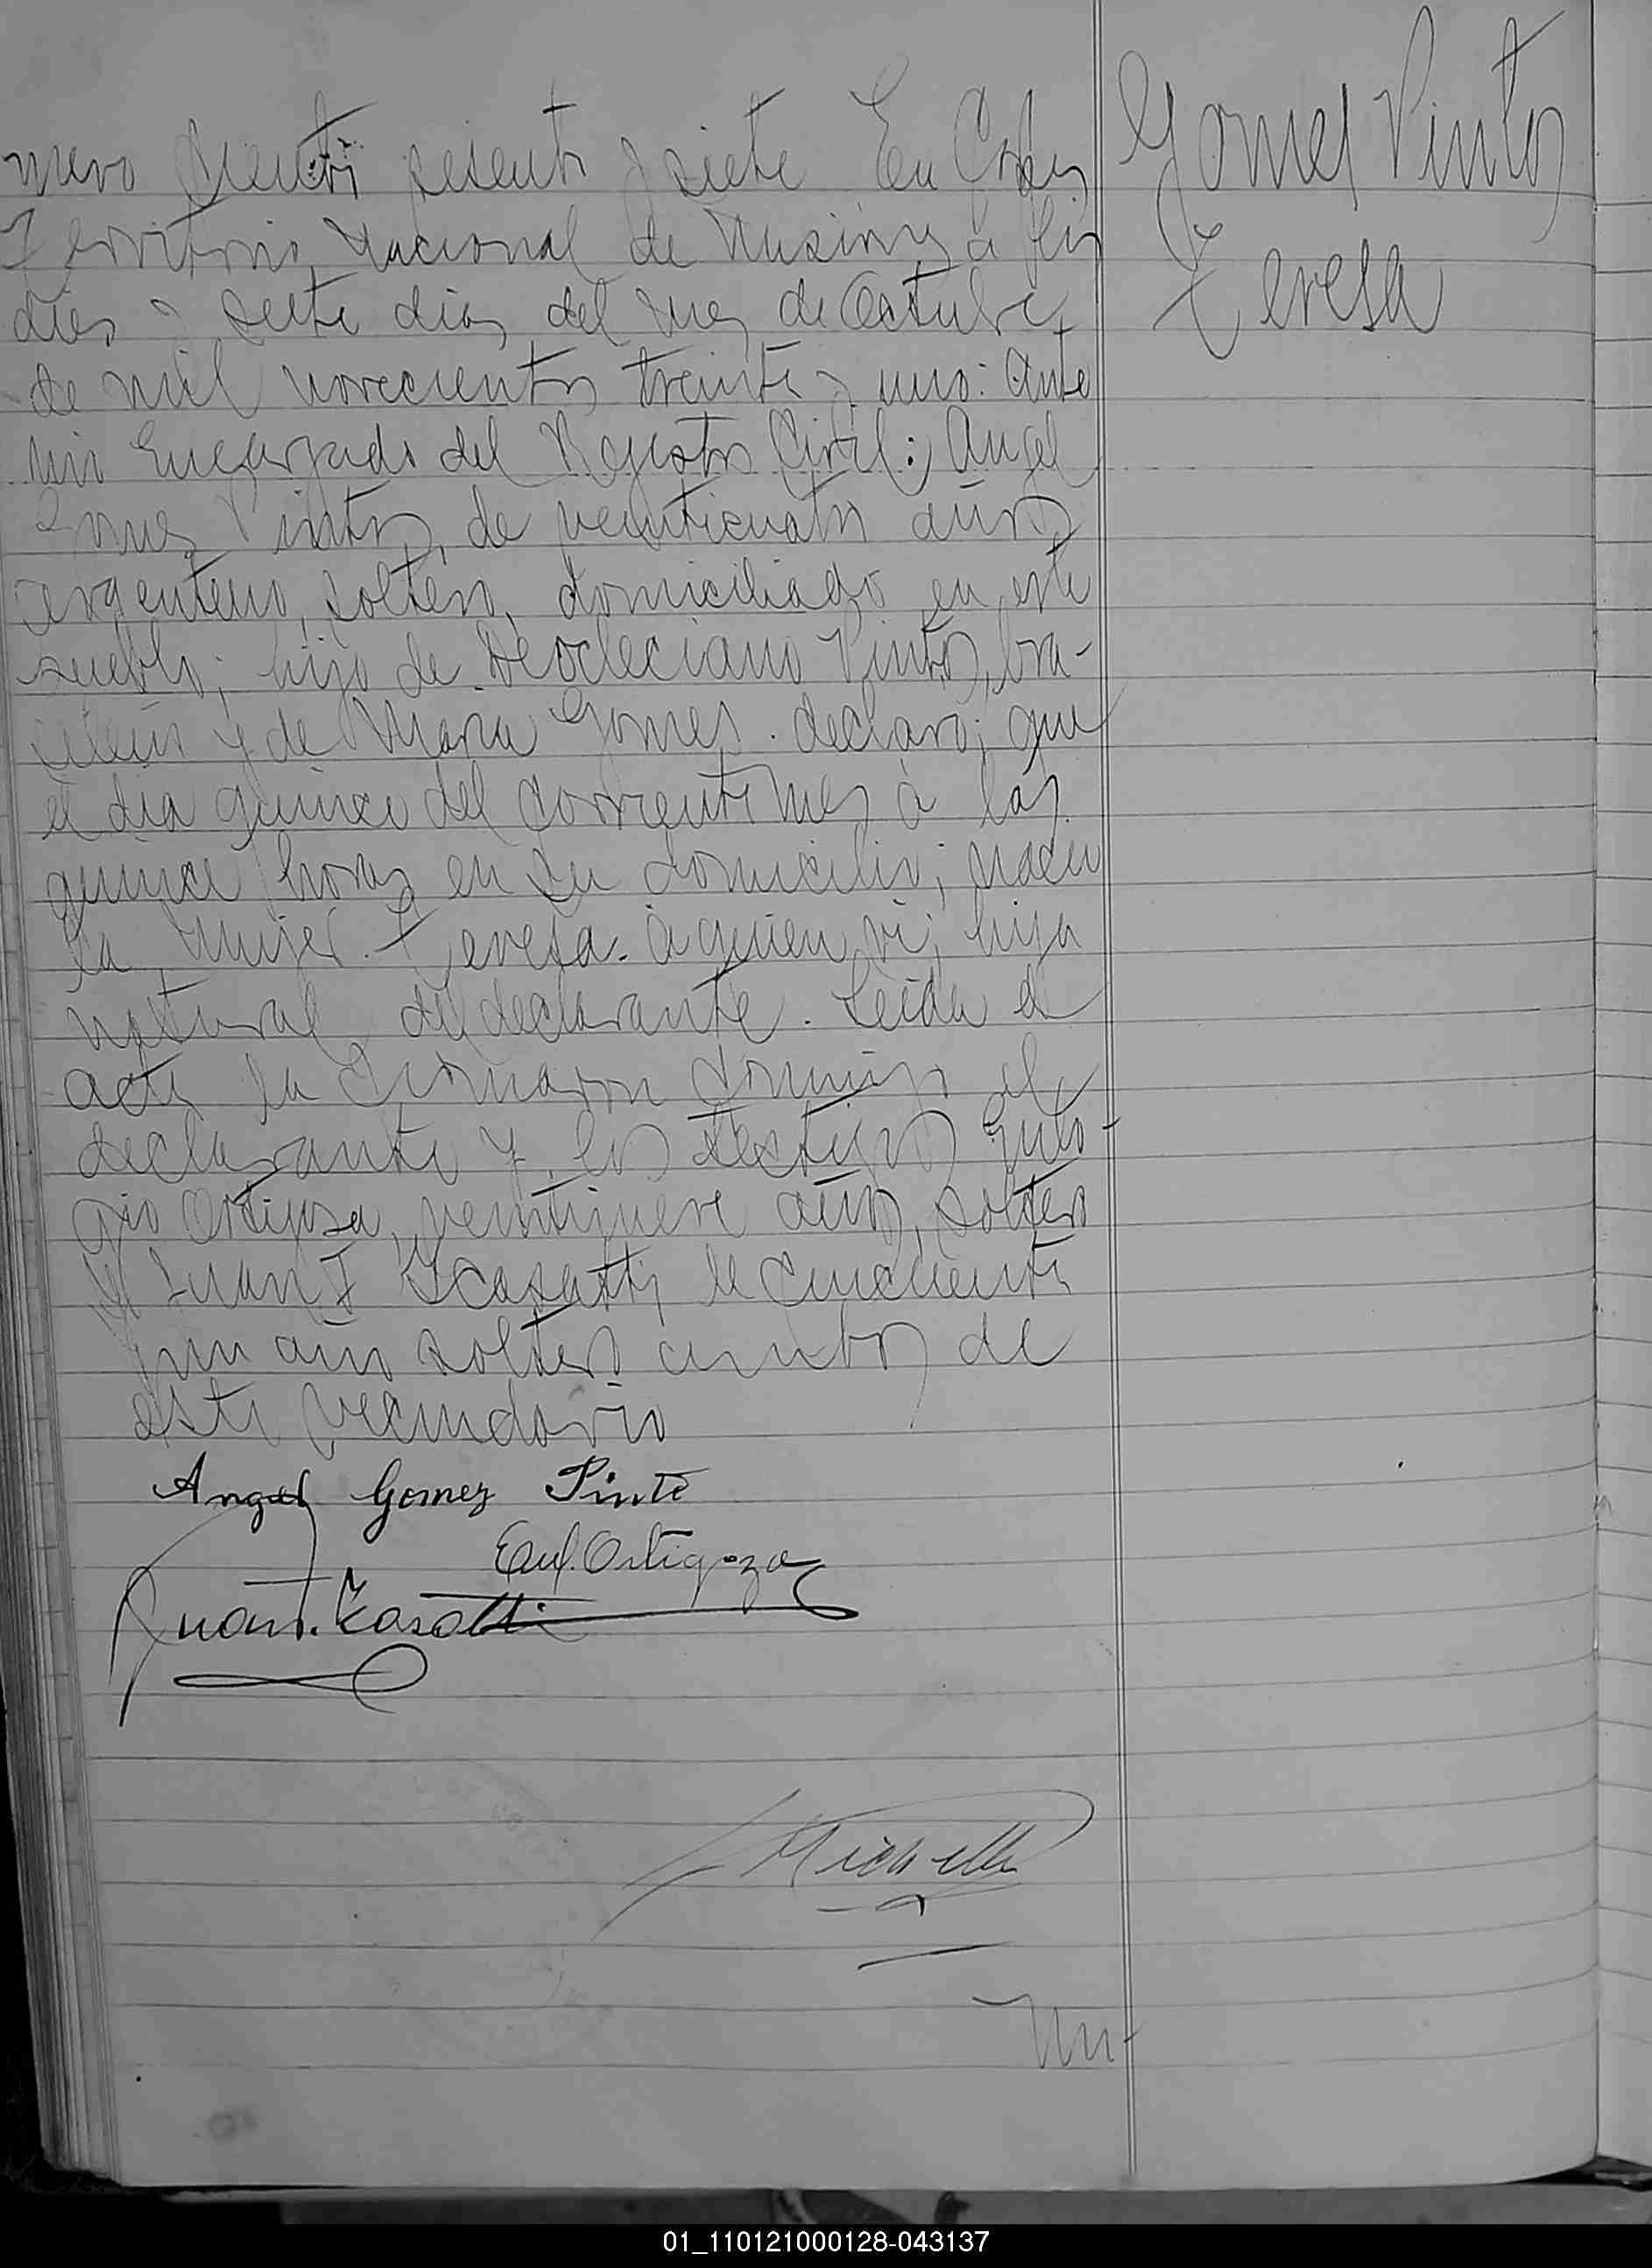 Gomes Pinto
Teresa
mero ciento sesenta y siete En
Territorio Nacional de Misiones a los
dies y siete dias del mes de Octubre
de mil novecientos treinta y uno: Ante
mi Encargado del Registro Civil: Angel
Gomes Pinto, de veinticuatro años
argentino, soltero, domiciliado en este
pueblo; hijo de Deocleciano Pinto, bra-
sileño y de Maria Gomes. declaró; que
el dia quince del corriente mes à las
quince horas en su domicilio; nació
la mujer Teresa. à quien vi; hija
natural del declarante. Leida el
acta la firmaron conmigo el
declarante y los testigos Eulo-
gio Ortigosa, veintinueve años, soltero
y Juan F Icasatti de cincuenta
y un años soltero ambos de
este vecindario
Angel Gomez Pinto
Eul. Ortigoza
Juan F. Icasatti
Nu-
01_110121000128-043137